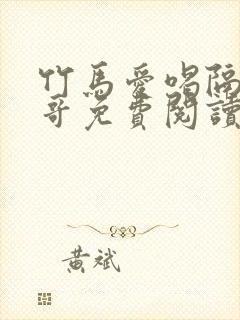 竹馬愛喝隔
哥免費閱讀
黃斌